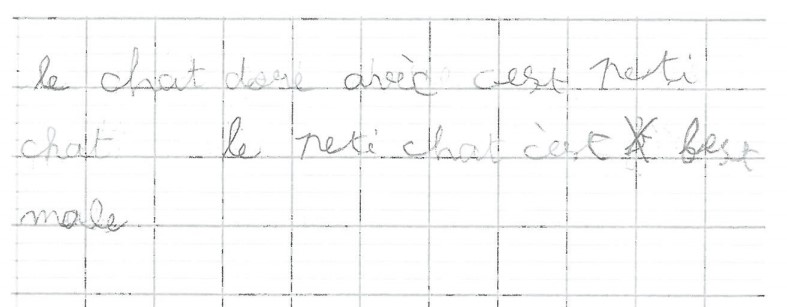 le chat dore avèc cest peti
chat le peti chat cèst best
male